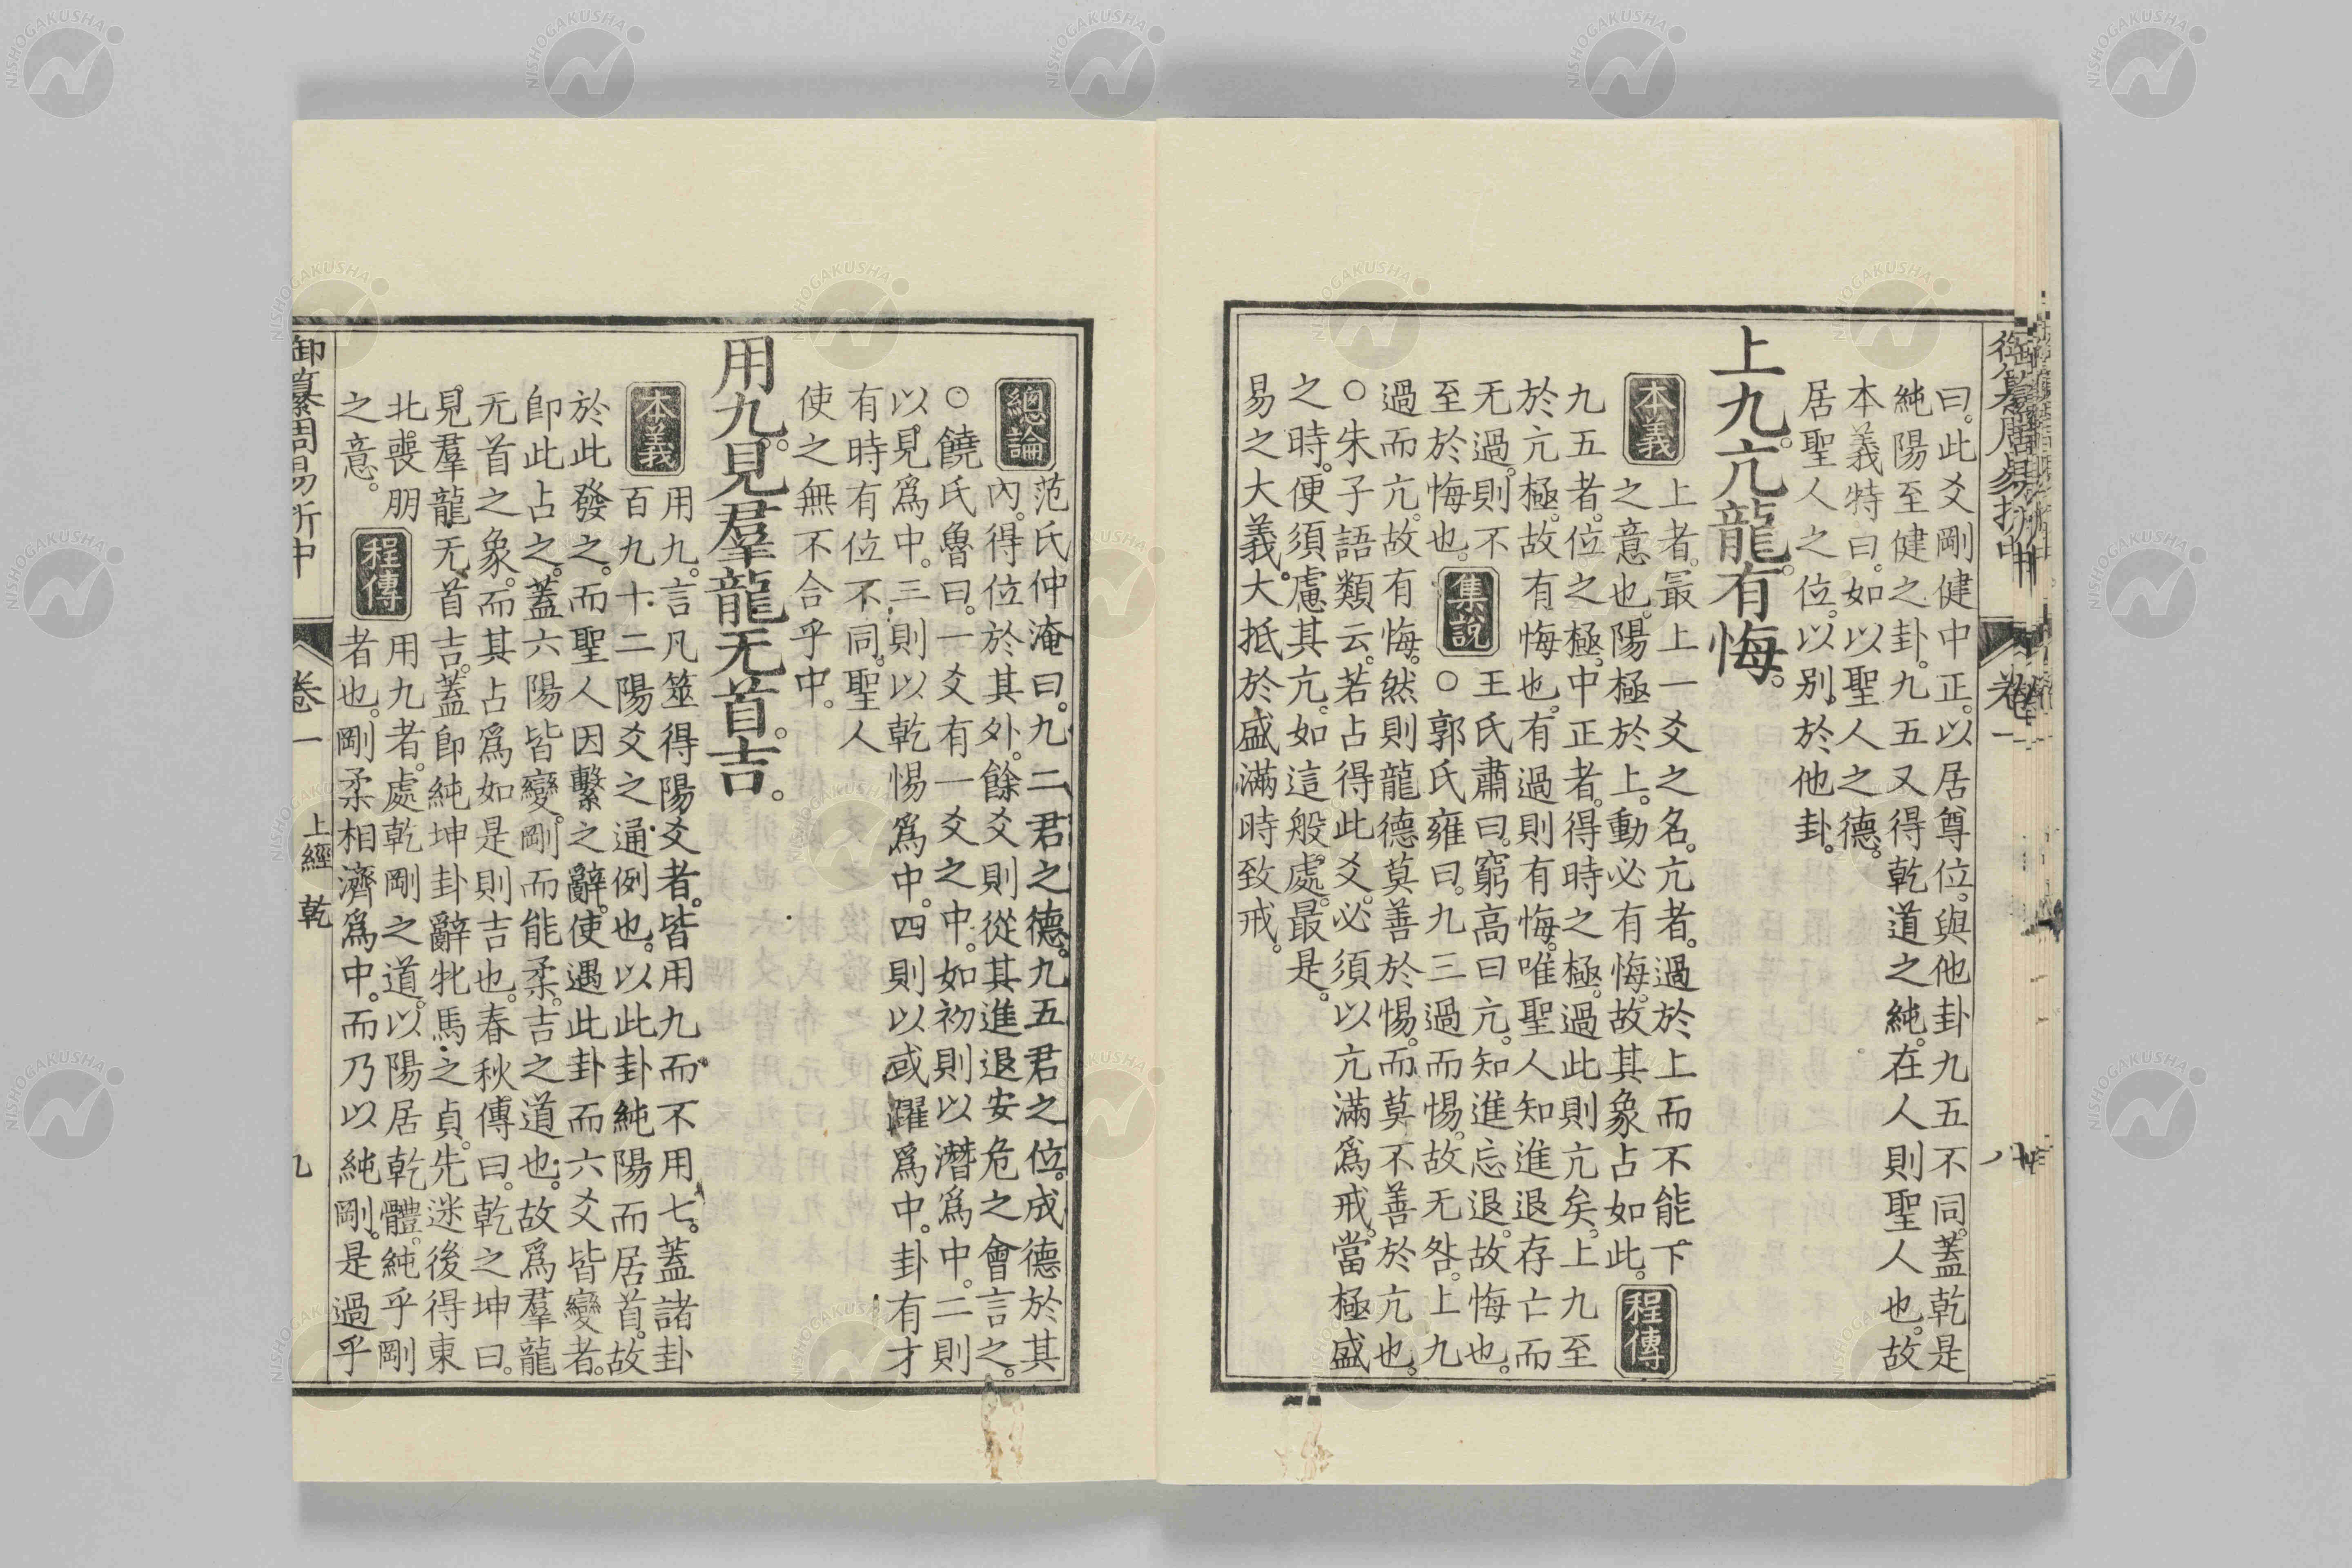 曰。此爻剛健中正。以居尊位。與他卦九五不同。蓋乾是
純陽至健之卦。九五又得乾道之純。在人則聖人也。故
本義特曰。如以聖人之德。
居聖人之位。以別於他卦。
上九。亢龍有悔。
本義 上者。最上一爻之名。亢者。過於上而不能下
之意也。陽極於上。動必有悔。故其象占如此。 程傳
九五者。位之極。中正者。得時之極。過此則亢矣。上九至
於亢極。故有悔也。有過則有悔。唯聖人知進退存亡而
无過。則不
至於悔也。 集說 王氏肅曰。窮高曰亢。知進忘退。故悔也。
○郭氏雍曰。九三過而惕。故无咎。上九
過而亢。故有悔。然則龍德莫善於惕。而莫不善於亢也。
○朱子語類云。若占得此爻。必須以亢滿爲戒。當極盛
之時。便須慮其亢。如這般處。最是。
易之大義。大抵於盛滿時致戒。
御纂周易折中
卷一
八
總論 范氏仲淹曰。九二君之德。九五君之位。成德於其
內。得位於其外。餘爻則從其進退安危之會言之。
○饒氏魯曰。一爻有一爻之中。如初則以潛爲中。二則
以見爲中。三則以乾惕爲中。四則以或躍爲中。卦有才
有時有位不同。聖人
使之無不合乎中。
用九。見羣龍无首。吉。
本義 用九。言凡筮得陽爻者。皆用九而不用七。蓋諸卦
百九十二陽爻之通例也。以此卦純陽而居首。故
於此發之。而聖人因繫之辭。使遇此卦而六爻皆變者。
卽此占之。蓋六陽皆變。剛而能柔。吉之道也。故爲羣龍
无首之象。而其占爲如是則吉也。春秋傳曰。乾之坤曰。
見羣龍无首吉。蓋卽純坤卦辭牝馬之貞。先迷後得東
北喪朋
之意。 程傳 用九者。處乾剛之道。以陽居乾體。純乎剛
者也。剛柔相濟爲中。而乃以純剛。是過乎
御纂周易折中
卷一
上經 乾
九
NISHOGAKUSHA